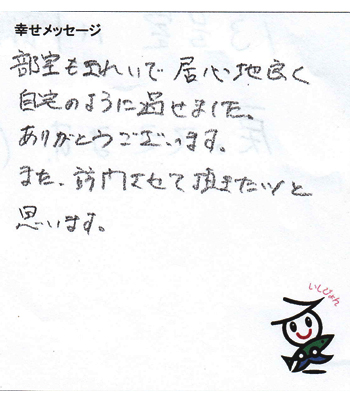 幸せメッセージ
部室もきれいで居心地良く
自宅のように過せました。
ありがとうございます。
また、訪門させて頂きたいと
思います。